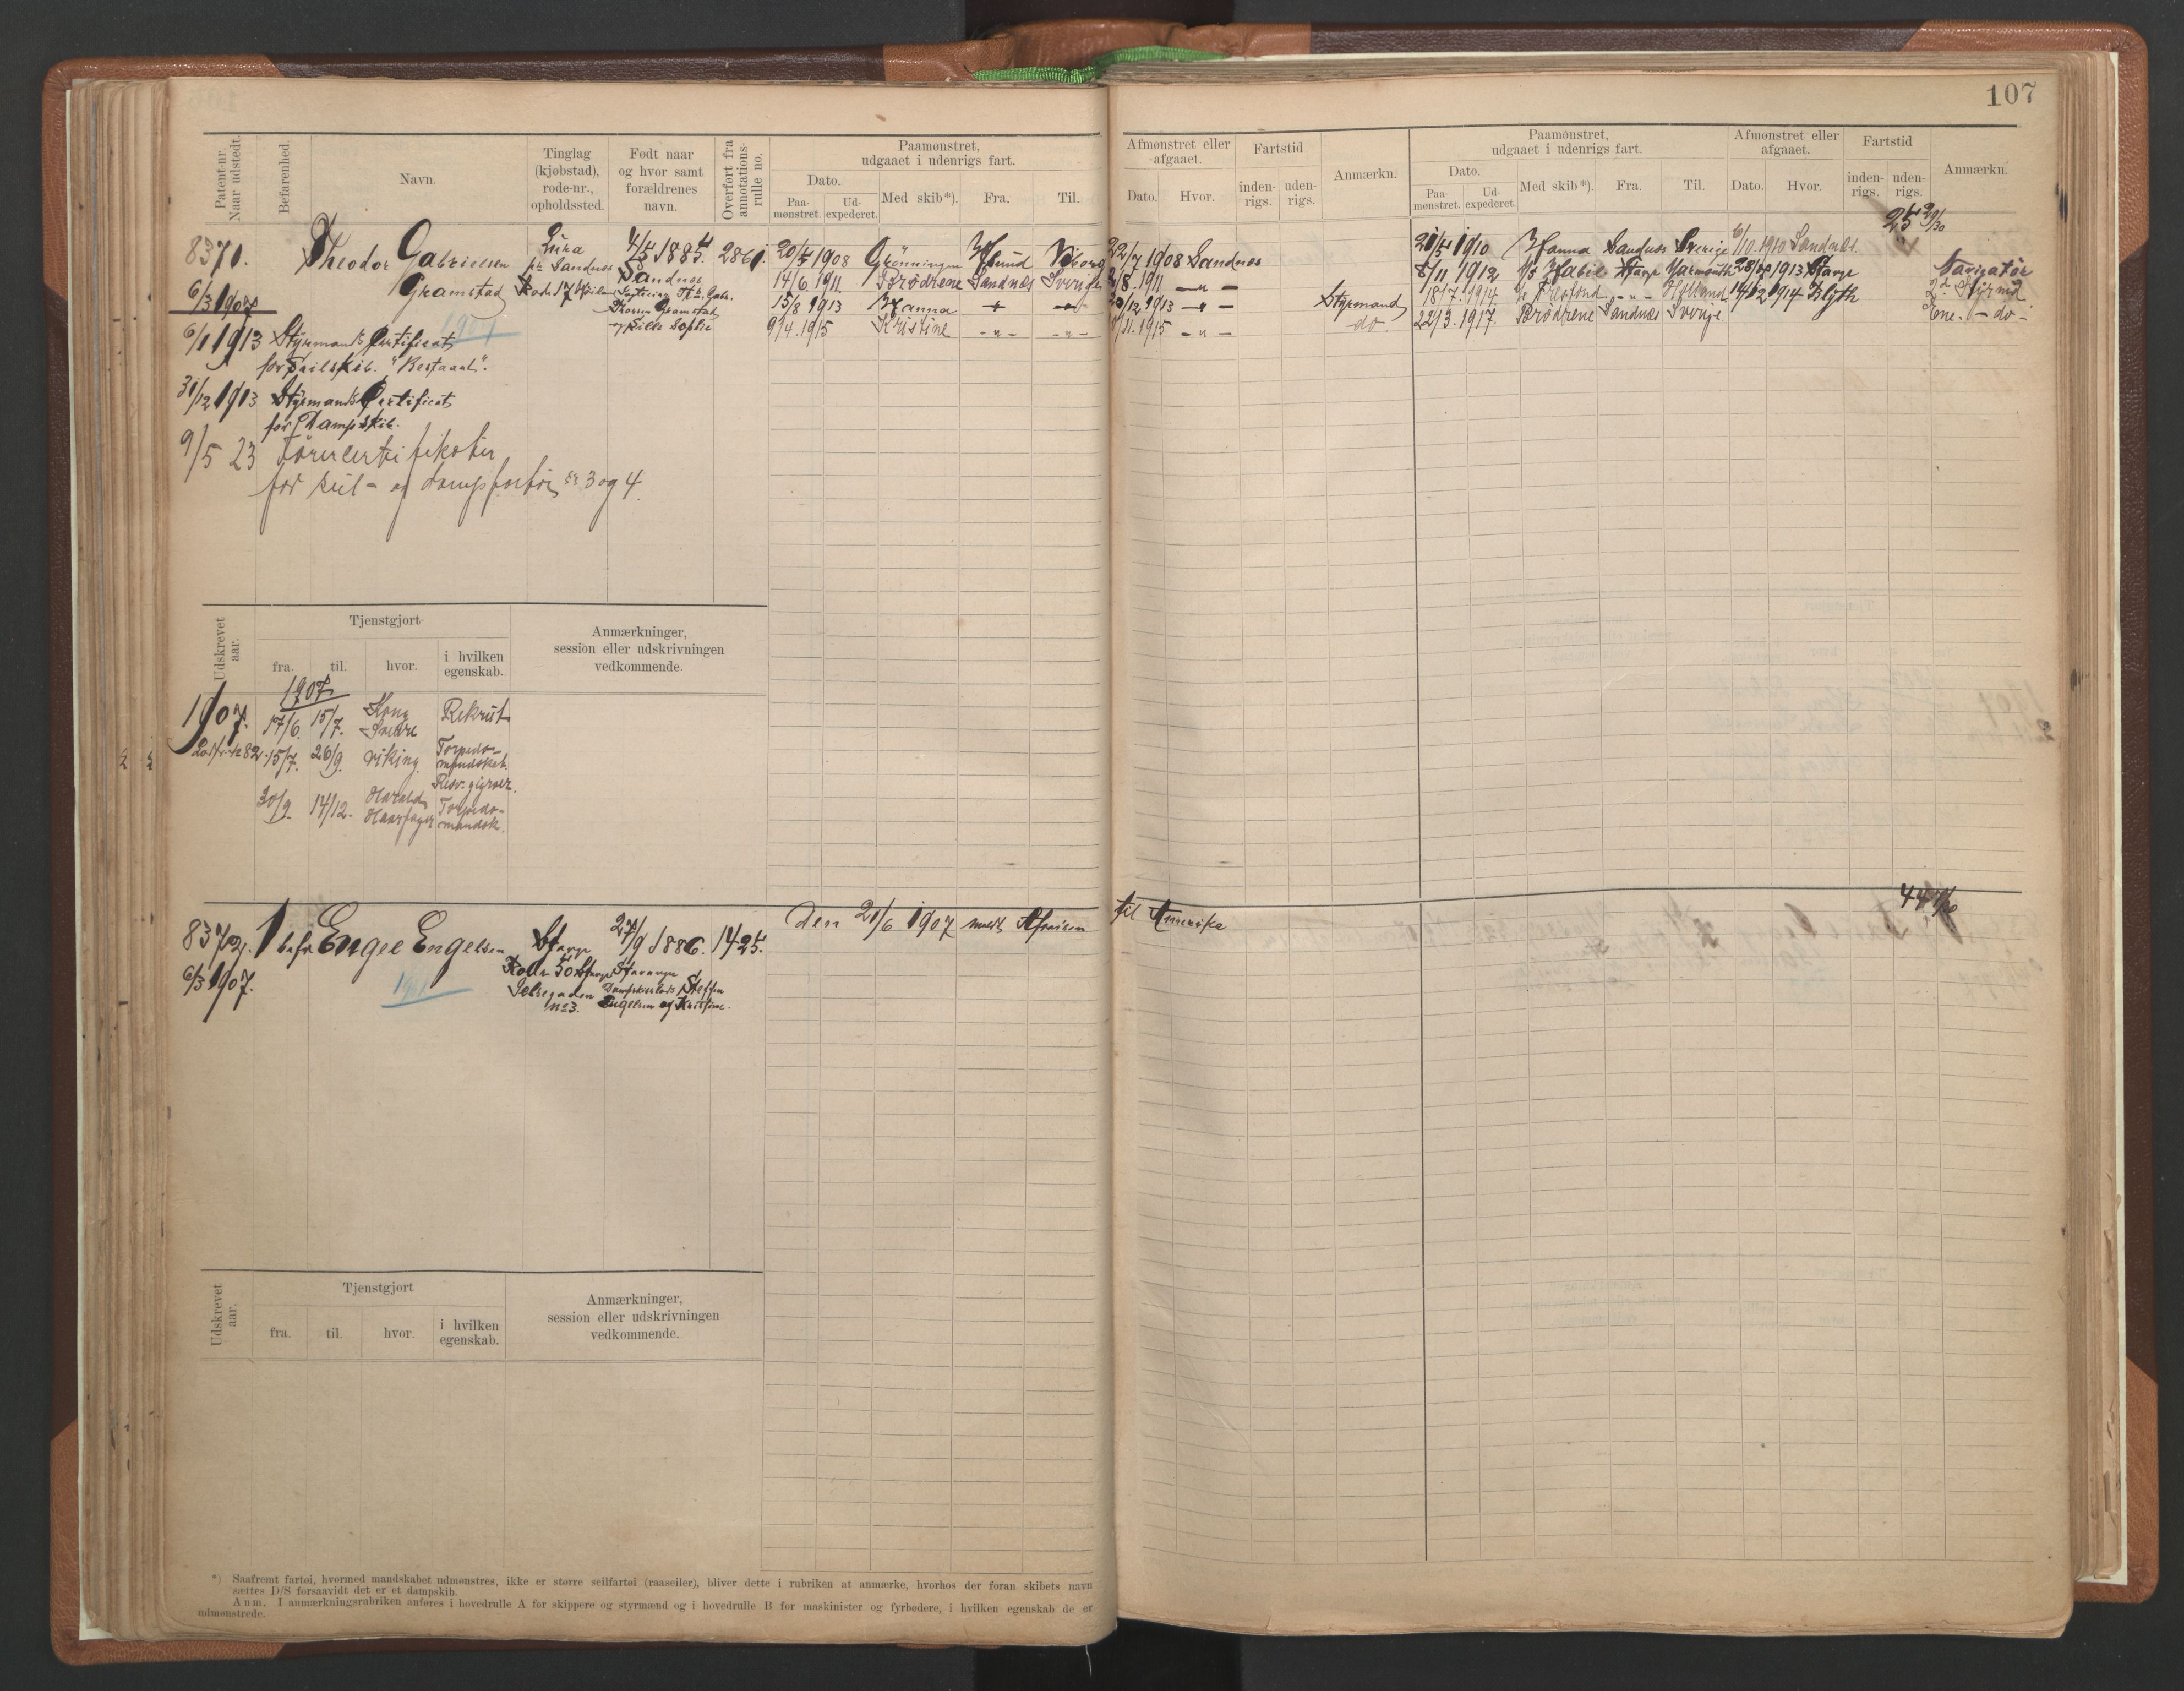 107
Patent-nr. Naar udstedt.
Befarenhed.
Navn.
Tinglag (kjøbstad), rode-nr., opholdssted.
Født naar og hvor samt forældrenes navn.
Overført fra annotations-rulle no.
Paamønstret, udgaaet i udenrigs fart.
Dato.
Paa-mønstret. Ud-expederet.
Med skib*).
Fra.
Til.
Afmønstret eller afgaaet.
Dato.
Hvor.
Fartstid
inden-rigs.
uden-rigs.
Anmærkn.
Paamønstret, udgaaet i udenrigs fart.
Dato.
Paa-mønstret. Ud-expederet.
Med skib*).
Fra.
Til.
Afmønstret eller afgaaet.
Dato.
Hvor.
Fartstid
inden-rigs.
uden-rigs.
Anmærkn.
25 29/30
8371.
6/3 1907
Theodor Gabrielsen
Gramstad
1907
Lura
pr. Sandnes
Sandnes
Gramstad
2861.
20/5 1908 Grönningen
22/7 1908 Sandnes
14/6 1911 Brödrene Sandnes Sverige
1911 - " -
15/8 1913 Hanna
1913 - " - Styrmand
9/4 1915 Kristine - " - - " -
1915 - " - do
21/5 1910 Hanna Sandnes Sverige 6/10 1910 Sandnes
1912 Stavgr Yarmouth 1913 Stavgr Navigatör
18/7 1914 - " - Holland 14/12 1914 Blyth 2d Styrmd
22/3 1917. Brödrene Sandnes Sverige Ene. - do -
6/1 1913 Styrmands Certificat
for Seilskib. "Bestaaet".
31/12 1913 Styrmands Certificat
for Dampskib.
9/5 23 Förercertifikater
for seil- og dampfartöi 3 og 4.
Udskrevet aar.
Tjenstgjort
fra.
til.
hvor.
i hvilken egenskab.
Anmærkninger, session eller udskrivningen vedkommende.
1907
1907. 17/6. 15/7. Kong Sverre Rekrut
15/7. 26/9. Viking Torpedo-mandskab.
30/9. 14/12. Harald Haarfager Torpedo-mandsk.
44
8372.
6/3 1907.
1 bef Engel Engelsen
Stavgr
27/9 1886. 1425.
Rode 50 Stavgr Stavanger
No 3. Steffen
Engelsen og Kristine.
Den 21/6 1907 til Amerika
Udskrevet aar.
Tjenstgjort
fra.
til.
hvor.
i hvilken egenskab.
Anmærkninger, session eller udskrivningen vedkommende.
*) Saafremt fartøi, hvormed mandskabet udmønstres, ikke er større seilfartøi (raaseiler), bliver dette i rubriken at anmærke, hvorhos der foran skibets navn
sættes D/S forsaavidt det er et dampskib.
Anm. I anmærkningsrubriken anføres i hovedrulle A for skippere og styrmænd og i hovedrulle B for maskinister og fyrbødere, i hvilken egenskab de er
udmønstrede.